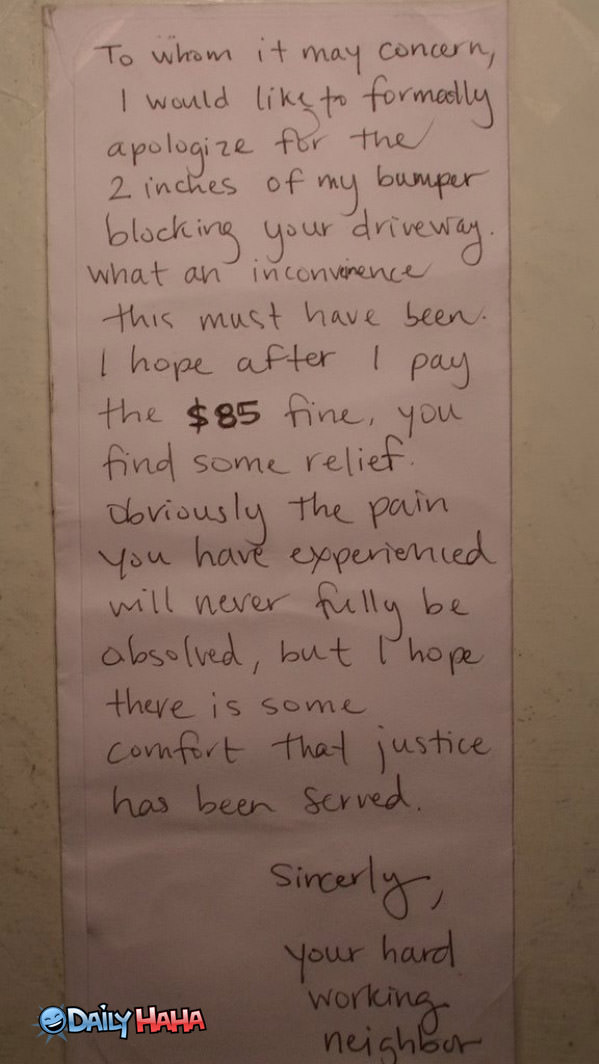 To whom it may concern,
I would like to formally
apologize for the
2 inches of my bumper
blocking your driveway.
what an inconvinence
this must have been.
I hope after I pay
the $85 fine, you
find some relief.
Obviously the pain
you have experienced
will never fully be
absolved, but I hope
there is some
comfort that justice
has been served.
Sincerly,
your hard
working
neighbor
DAILY HAHA